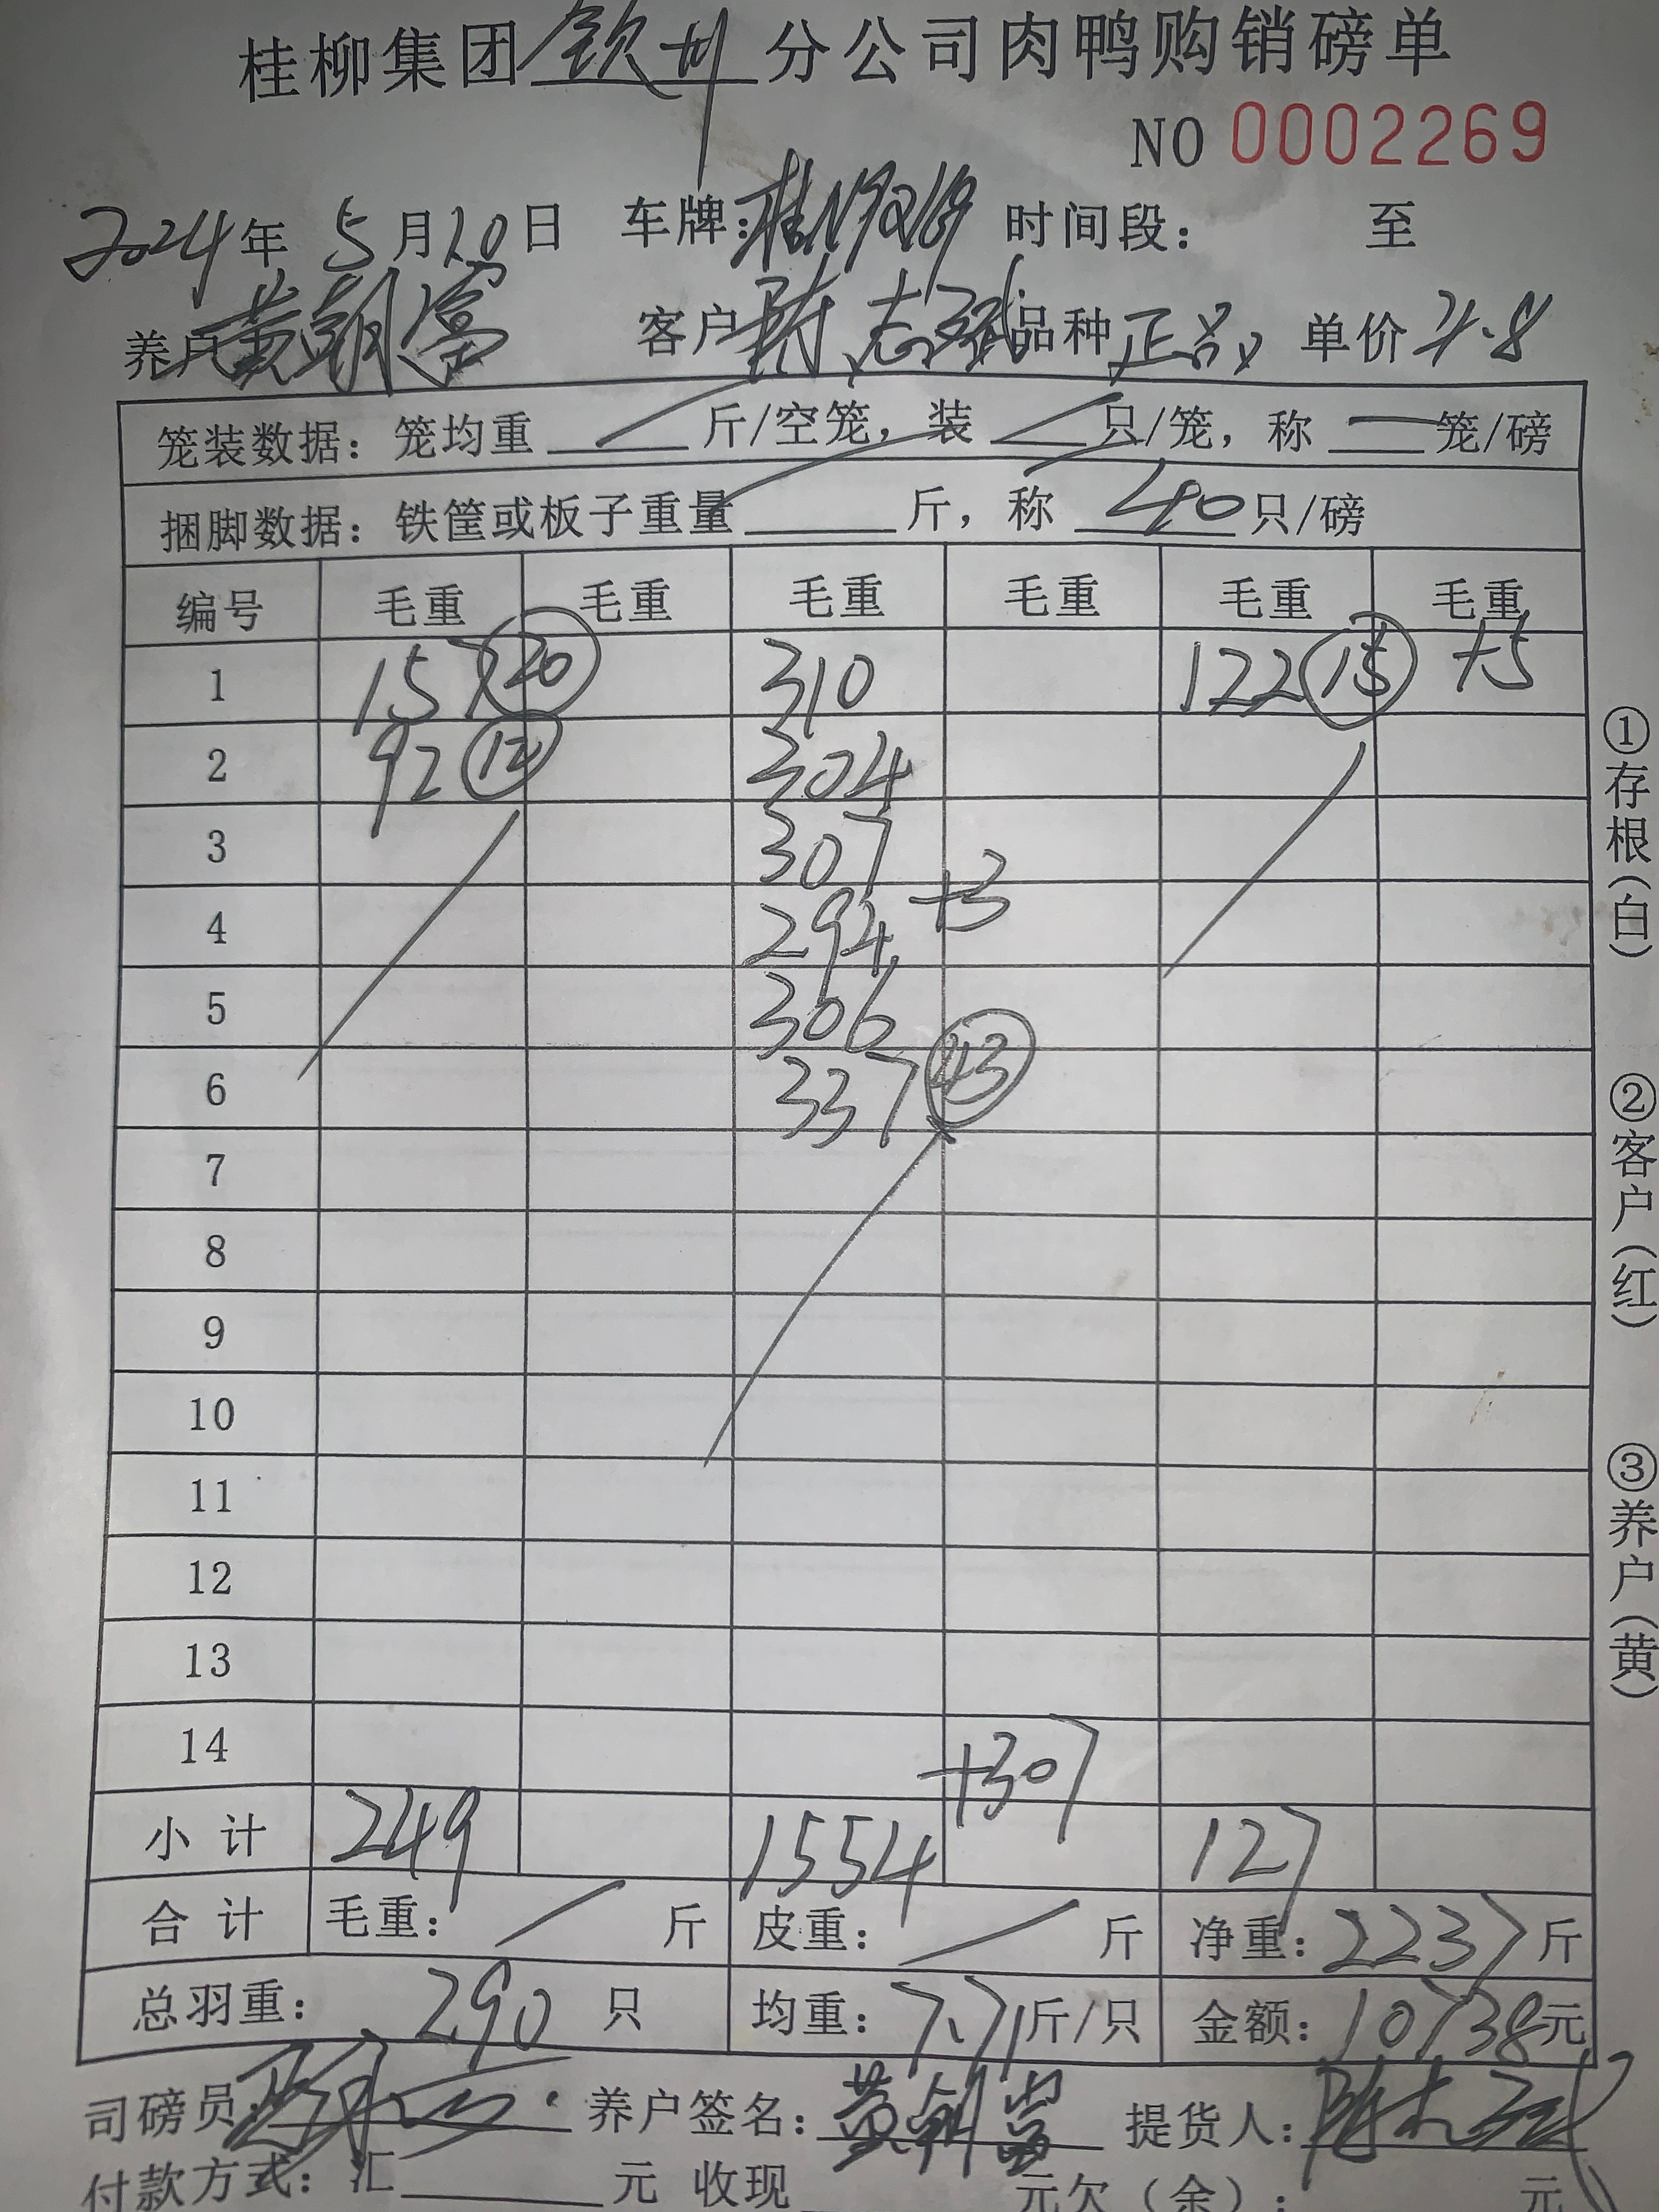 桂柳集团钦州分公司肉鸭购销磅单
NO 0002269
2024年 5月20日 车牌: 时间段: 至
养户 黄朝富 客户 陈志强 品种 正品 单价 4.8
笼装数据: 笼均重 斤/空笼, 装 只/笼, 称 笼/磅
捆脚数据: 铁筐或板子重量 斤, 称 40 只/磅
编号 毛重 毛重 毛重 毛重 毛重 毛重
1 157 20 310 122 15 +5
2 92 12 304
3 307
4 294 +3
5 306
6 337 43
7
8
9
10
11
12
13
14 +307
小计 249 1554 127
合计 毛重: 斤 皮重: 斤 净重: 2237斤
总羽重: 290 只 均重: 7.71斤/只 金额: 10738元
司磅员: 养户签名: 黄朝富 提货人: 陈志强
付款方式: 汇 元 收现 元欠(余): 元
①存根(白)
②客户(红)
③养户(黄)